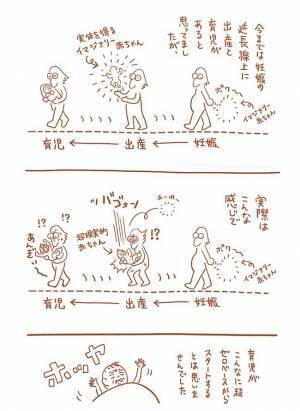 今までは妊娠の
延長線上に
出産と
育児が
あると
思ってまし
たが、
ポワ〜とした
イマジナリー
赤ちゃん
実体を得る
イマジナリー
赤ちゃん
育児 ← 出産 ← 妊娠
実際は
こんな
感じで
ポワ〜とした
イマジナリー
赤ちゃん
あーれー
ッバゴォーン
超現実的
赤ちゃん
!?
!?
!?
!?
あんぎゃー
育児 ← 出産 ← 妊娠
育児が
こんなに超
ゼロベースから
スタートする
とは思いま
せんでした
ホッヤー